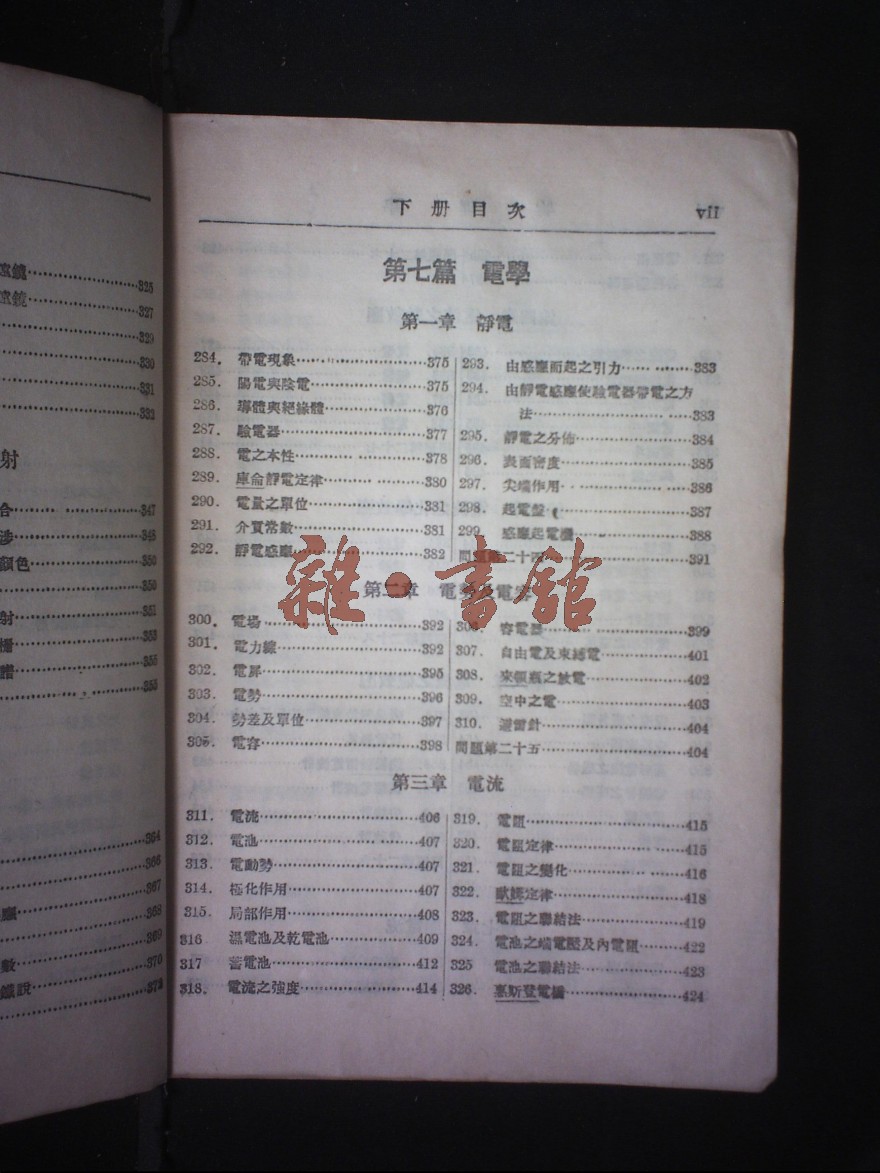 窺鏡……325
窺鏡……327
……329
……330
……331
……333
射
合……347
涉……348
顏色……350
……350
射……351
柵……353
譜……355
……355
……364
……366
……367
應……368
……369
數……370
鐵說……372
下冊目次 vii
第七篇 電學
第一章 靜電
284. 帶電現象……375
285. 陽電與陰電……375
286. 導體與絕緣體……376
287. 驗電器……377
288. 電之本性……378
289. 庫侖靜電定律……380
290. 電量之單位……381
291. 介質常數……381
292. 靜電感應……382
293. 由感應而起之引力……383
294. 由靜電感應使驗電器帶電之方
法……383
295. 靜電之分佈……384
296. 表面密度……385
297. 尖端作用……386
298. 起電盤……387
299. 感應起電機……388
問題第二十四……391
雜·書館
第二章 電勢及電容
300. 電場……392
301. 電力線……392
302. 電屏……395
303. 電勢……396
304. 勢差及單位……397
305. 電容……398
306. 容電器……399
307. 自由電及束縛電……401
308. 來頓瓶之放電……402
309. 空中之電……403
310. 避雷針……404
問題第二十五……404
第三章 電流
311. 電流……406
312. 電池……407
313. 電動勢……407
314. 極化作用……407
315. 局部作用……408
316 濕電池及乾電池……409
317 蓄電池……412
318. 電流之強度……414
319. 電阻……415
320. 電阻定律……415
321. 電阻之變化……416
322. 歐姆定律……418
323. 電阻之聯結法……419
324. 電池之端電壓及內電阻……422
325 電池之聯結法……423
326. 惠斯登電橋……424